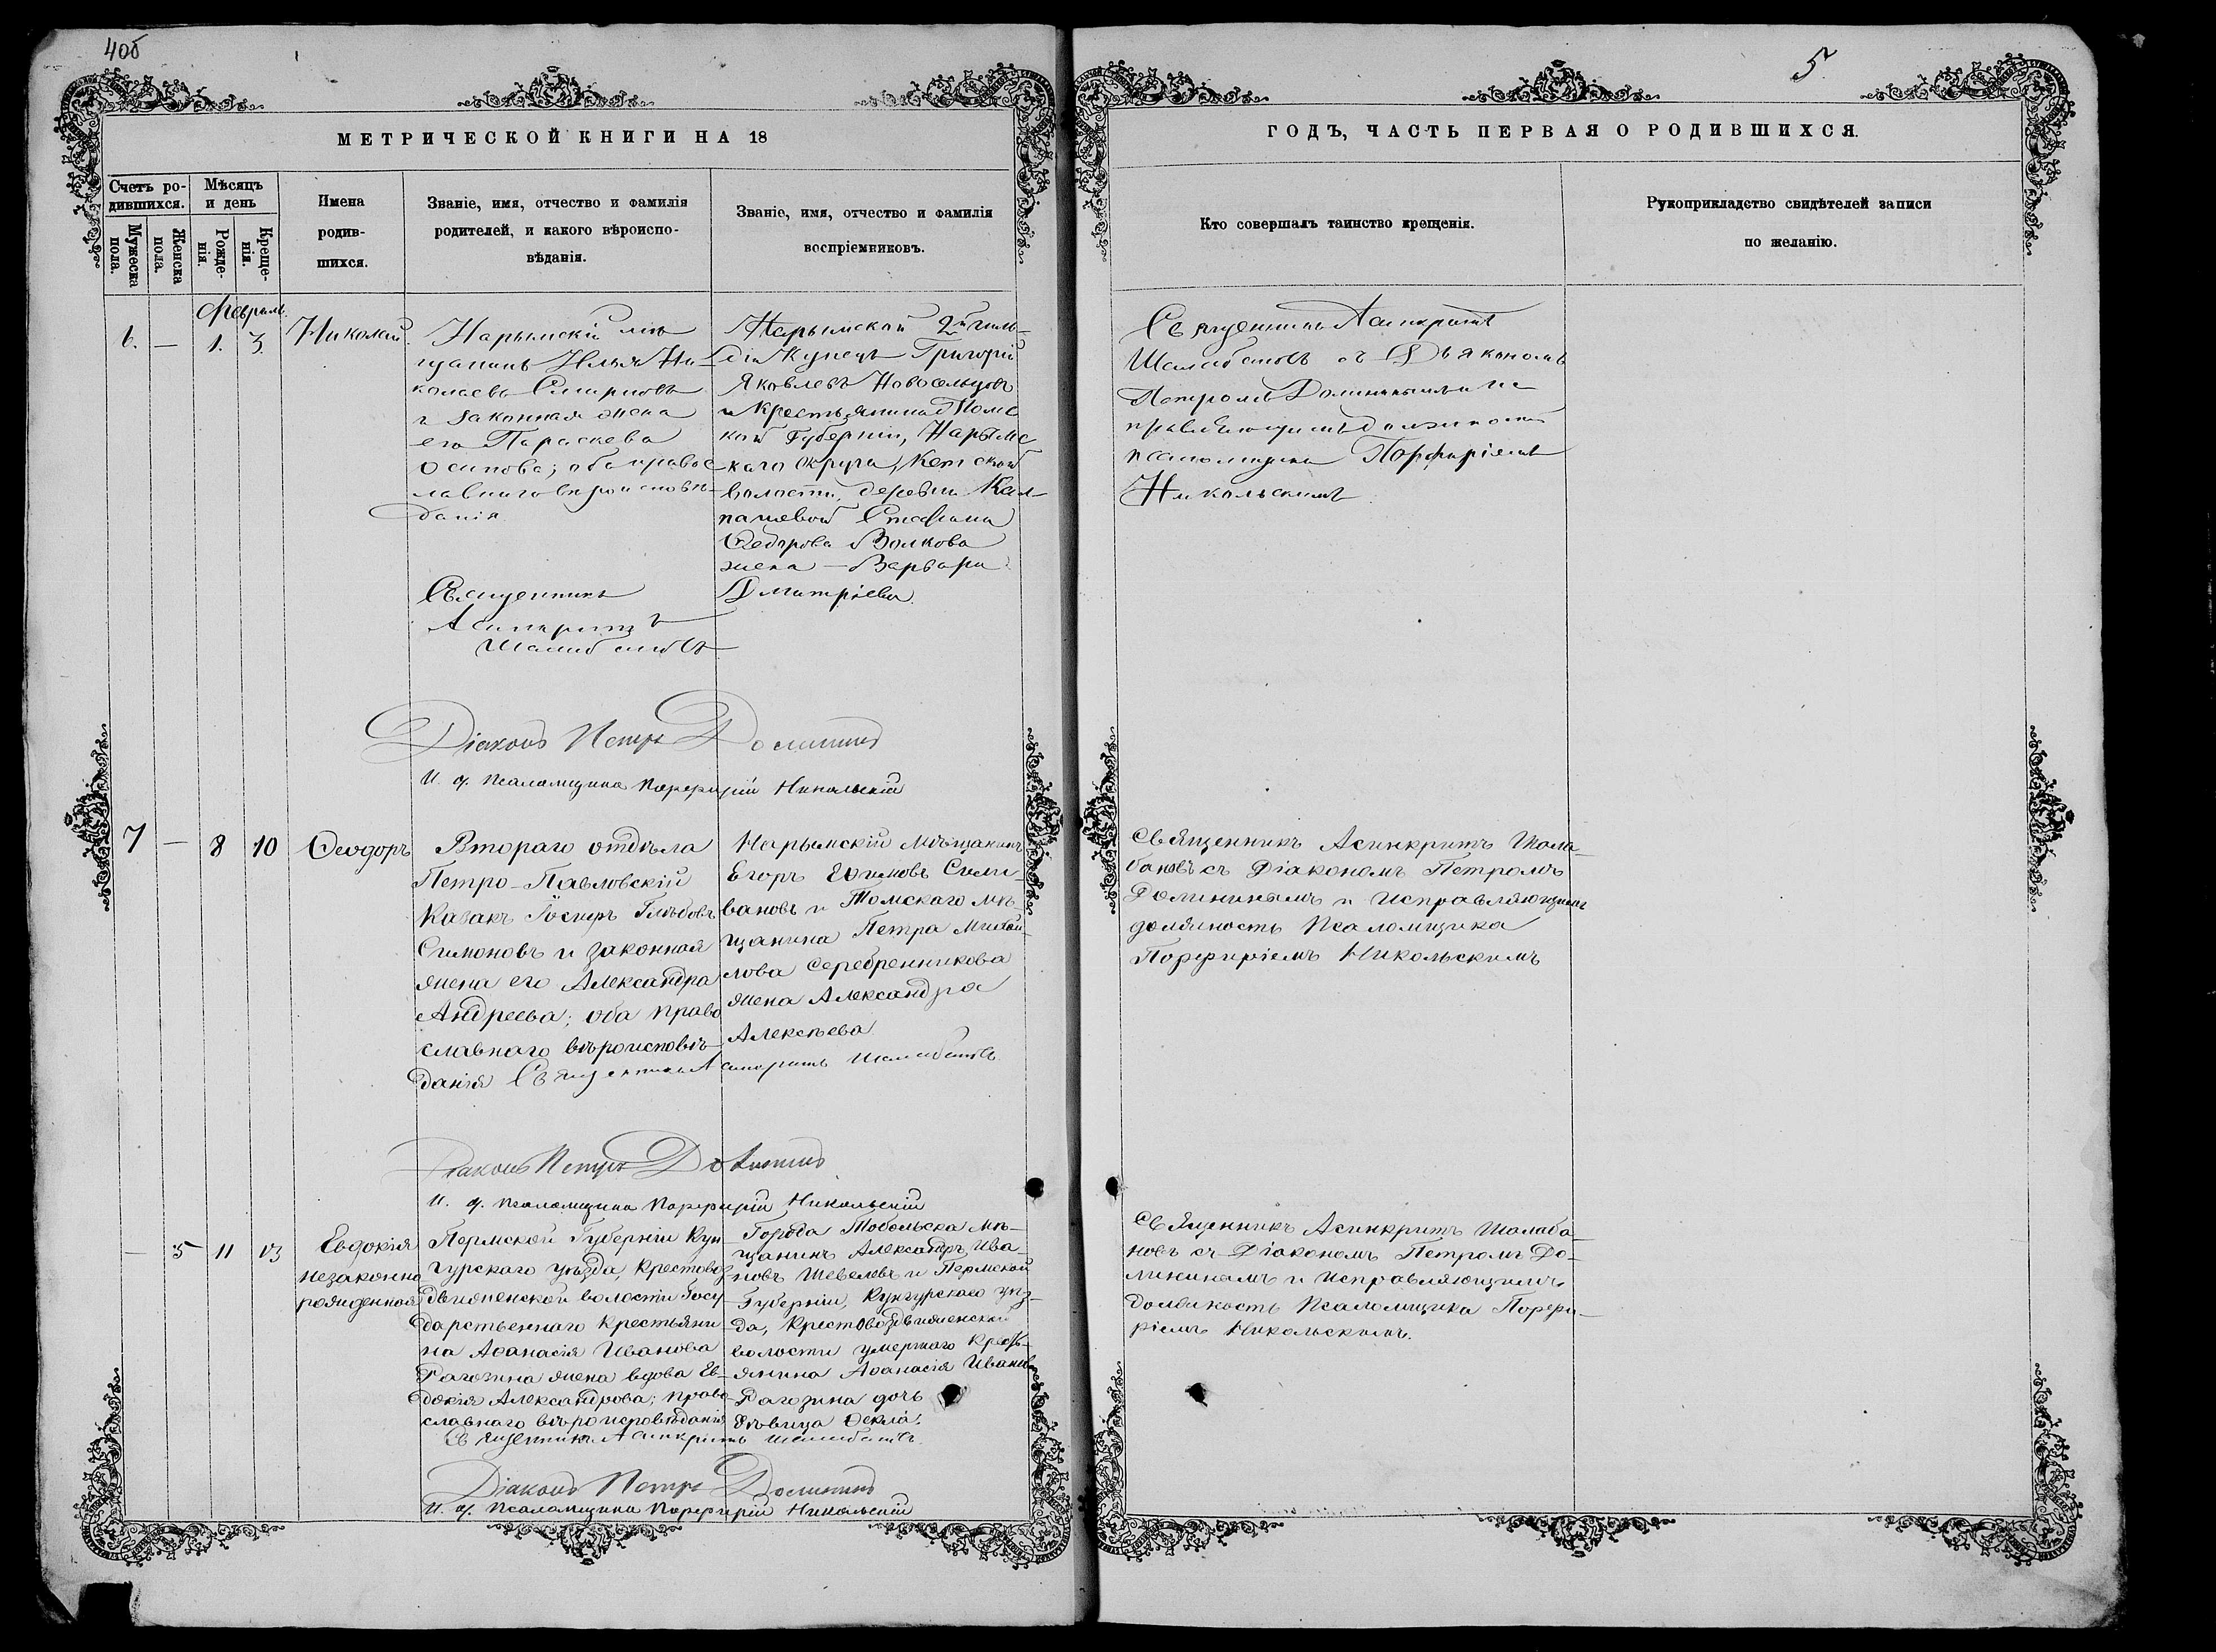 4об
МЕТРИЧЕСКОЙ КНИГИ НА 18
Счетъ ро-
дившихся.
Мѣсяцъ
и день
Мужеска
пола.
Женска
пола.
Рожде-
нія.
Креще-
нія.
Имена
родив-
шихся.
Званіе, имя, отчество и фамилія
родителей, и какого вѣроиспо-
вѣданія.
Званіе, имя, отчество и фамилія
воспріемниковъ.
Февраль
6. — 1. 3.
Николай
Нарымскій мѣ
щанинъ Илья Ни-
колаевъ Смирновъ
и законная жена
его Параскева
Осипова; оба правос
лавнаго вѣроисповѣ-
данія
Священникъ
Асинкритъ
Шалабановъ
Нарымской 2й гиль-
діи Купецъ Григорій
Яковлевъ Новосельцовъ
и Крестьянина Томс
кой Губерніи, Нарымс
каго Округа, Кетской
волости, деревни Кол-
пашевой Стефана
Ѳедорова Волкова
жена — Варвара
Дмитріева.
Діаконъ Петръ Домининъ
И. д. Псаломщика Порфирій Никольскій
7 — 8 10
Ѳеодоръ
Втораго отдѣла
Петро-Павловскій
Казакъ Іосифъ Глѣбовъ
Симоновъ и законная
жена его Александра
Андреева; оба право
славнаго вѣроисповѣ-
данія Священникъ Асинкритъ Шалабановъ
Нарымскій Мѣщанинъ
Егоръ Ефимовъ Сели-
вановъ и Томскаго мѣ-
щанина Петра Михай-
лова Серебренникова
жена Александра
Алексѣева
Діаконъ Петръ Домининъ
И. д. Псаломщика Порфирій Никольскій
— 5 11 13
Евдокія
незаконно
рожденная
Пермской Губерніи Кун-
гурскаго уѣзда, Крестовоз
движенской волости Госу
дарственнаго Крестьяни
на Аѳанасія Иванова
Рагозина жена вдова Ев-
докія Александрова; право
славнаго вѣроисповѣданія
Священникъ Асинкритъ Шалабановъ
Города Тобольска мѣ-
щанинъ Александръ Ива-
новъ Шевелевъ и Пермской
Губерніи, Кунгурскаго уѣз-
да, Крестовоздвиженской
волости умершаго Кресть-
янина Аѳанасія Иванов
Рагозина дочь
Дѣвица Ѳекла.
Діаконъ Петръ Домининъ
И. д. Псаломщика Порфирій Никольскій
5.
ГОДЪ, ЧАСТЬ ПЕРВАЯ О РОДИВШИХСЯ.
Кто совершалъ таинство крещенія.
Рукоприкладство свидѣтелей записи
по желанію.
Священникъ Асинкритъ
Шалабановъ съ Дьякономъ
Петромъ Доминнымъ и ис
правляющимъ должность
псаломщика Порфиріемъ
Никольскимъ
Священникъ Асинкритъ Шала-
бановъ съ Діакономъ Петромъ
Доминнымъ и Исправляющимъ
должность Псаломщика
Порфиріемъ Никольскимъ
Священникъ Асинкритъ Шалаба-
новъ съ Діакономъ Петромъ До-
мининымъ и Исправляющимъ
должность Псаломщика Порфи-
ріемъ Никольскимъ.